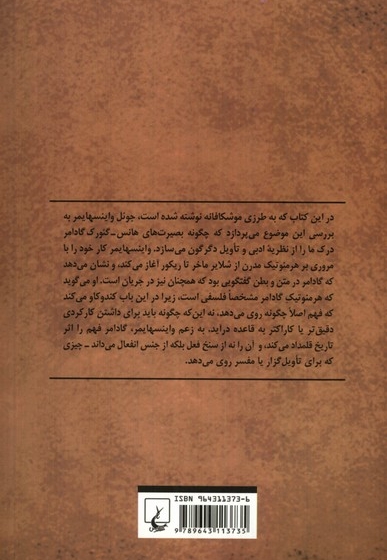 در این کتاب که به طرزی موشکافانه نوشته شده است، جوئل واینسهایمر به
بررسی این موضوع می‌پردازد که چگونه بصیرت‌های هانس ـ گئورک گادامر
درک ما را از نظریهٔ ادبی و تأویل دگرگون می‌سازد. واینسهایمر کار خود را با
مروری بر هرمنوتیک مدرن از شلایر ماخر تا ریکور آغاز می‌کند، و نشان می‌دهد
که گادامر در متن و بطن گفتگویی بود که همچنان نیز در جریان است. او می‌گوید
که هرمنوتیکِ گادامر مشخصاً فلسفی است، زیرا در این باب کندوکاو می‌کند
که فهم اصلاً چگونه روی می‌دهد، نه این‌که چگونه باید برای داشتن کارکردی
دقیق‌تر یا کاراکتر به قاعده درآید. به زعم واینسهایمر، گادامر فهم را اثر
تاریخ قلمداد می‌کند، و آن را نه از سنخ فعل بلکه از جنس انفعال می‌داند ـ چیزی
که برای تأویل‌گزار یا مفسر روی می‌دهد.
ISBN 964311373-6
9 789643 113735